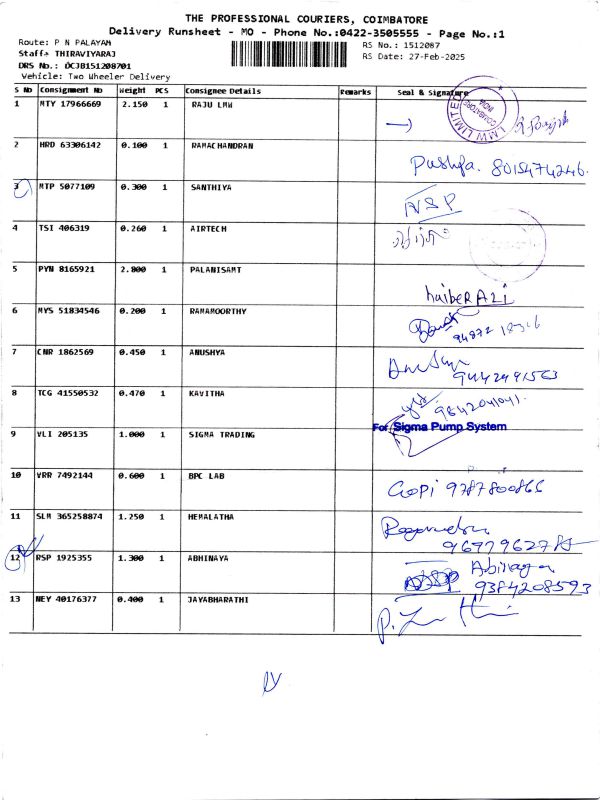 THE PROFESSIONAL COURIERS, COIMBATORE
Delivery Runsheet - MO - Phone No.:0422-3505555 - Page No.:1
Route: P N PALAYAM
RS No.: 1512087
Staff: THIRAVIYARAJ
RS Date: 27-Feb-2025
DRS No.: DCJB151208701
Vehicle: Two Wheeler Delivery
S No Consignment No Weight PCS Consignee Details Remarks Seal & Signature
1 MTY 17966669 2.150 1 RAJU LMW
LMW LIMITED COIMBATORE INDIA
2 HRD 63306142 0.100 1 RAMACHANDRAN
Pushpa. 8015474246.
3 MTP 5077109 0.300 1 SANTHIYA
NSP
4 TSI 406319 0.260 1 AIRTECH
5 PYN 8165921 2.800 1 PALANISAMY
haiberALi
6 MYS 51834546 0.200 1 RAMAMOORTHY
94872
7 CNR 1862569 0.450 1 ANUSHYA
9442491563
8 TCG 41550532 0.470 1 KAVITHA
9842041041.
For Sigma Pump System
9 VLI 205135 1.000 1 SIGMA TRADING
10 VRR 7492144 0.600 1 BPC LAB
Gopi 9787800866
11 SLM 365258874 1.250 1 HEMALATHA
12 RSP 1925355 1.300 1 ABHINAYA
Abinaya
9384208593
13 NEY 40176377 0.400 1 JAYABHARATHI